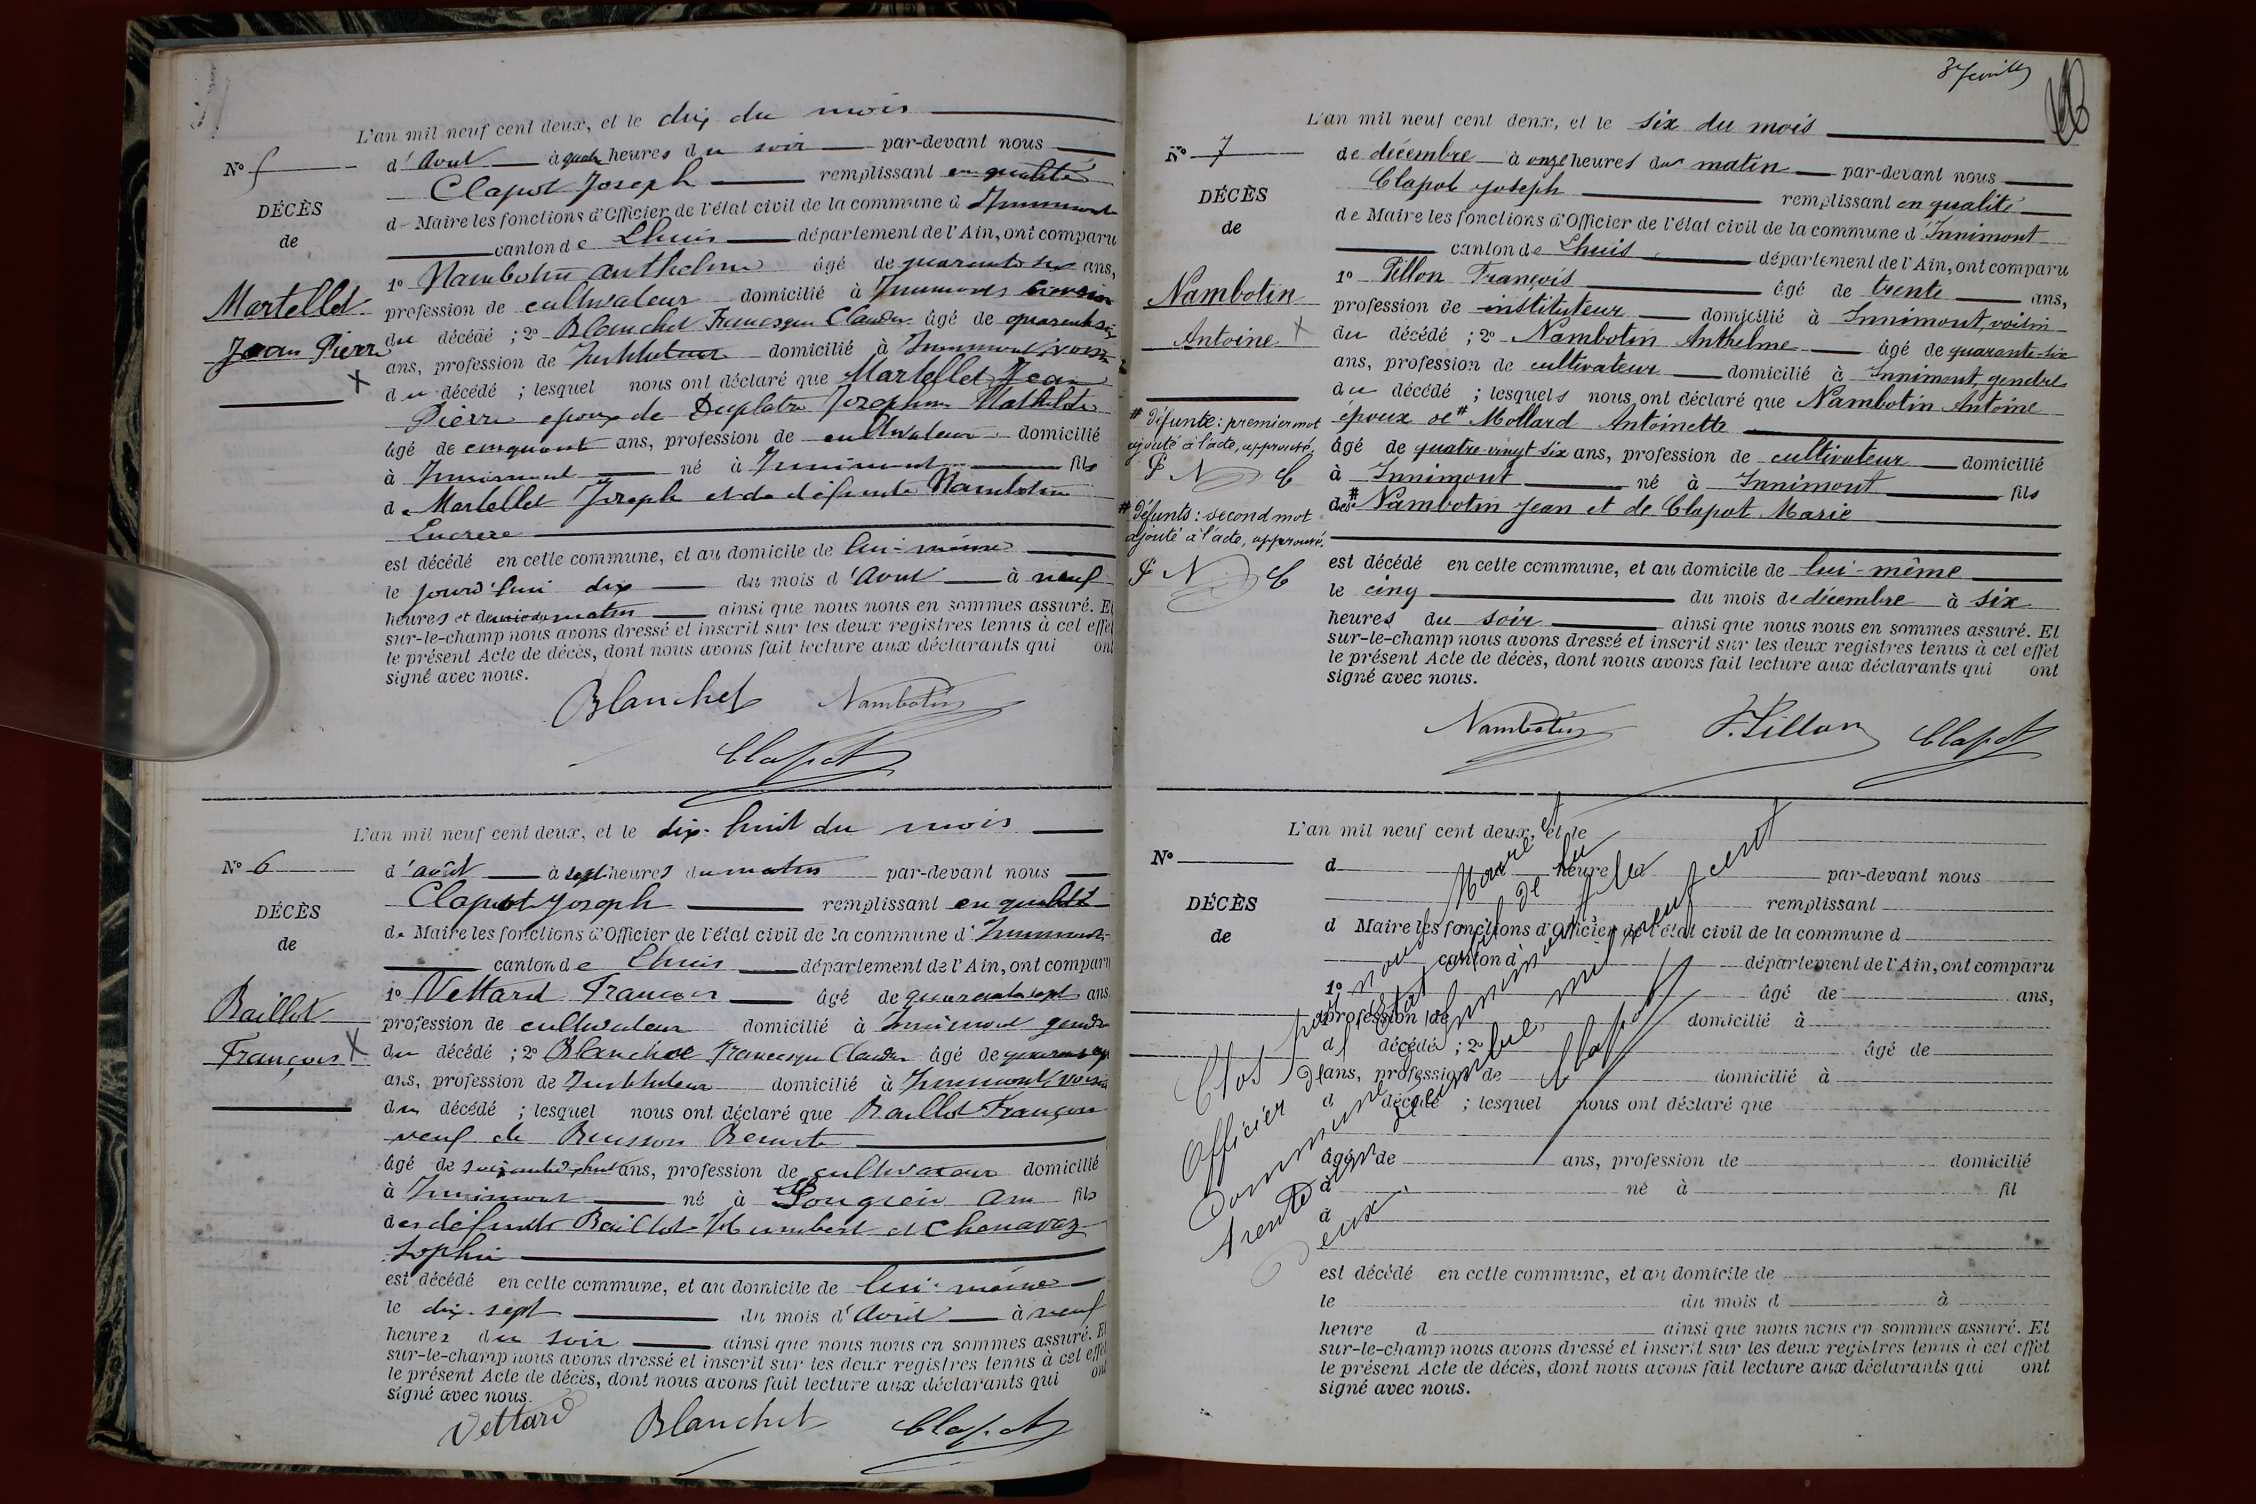 L'an mil neuf cent deux, et le dix du mois
N° 5
d'Avout à quatre heures du soir par-devant nous
Clapot Joseph remplissant en qualité
DÉCÈS
de Maire les fonctions d'Officier de l'état civil de la commune d'Innimont
de
canton de Lhuis département de l'Ain, ont comparu
1° Nambotin Anthelme âgé de quarante six ans,
Martellet
profession de cultivateur domicilié à Innimont
Jean Pierre
du décédé ; 2° Blanchet Francisque Claudius âgé de quarante six
ans, profession de Instituteur domicilié à Innimont, voisin
du décédé ; lesquel nous ont déclaré que Martellet Jean
Pierre époux de Duplatre Josephine Mathilde
âgé de cinquante ans, profession de cultivateur domicilié
à Innimont né à Innimont fils
de Martellet Joseph et de défunte Nambotin
est décédé en cette commune, et au domicile de lui-même
le jourd'hui dix du mois d'Avout à neuf
heures et demie du matin ainsi que nous nous en sommes assuré. Et
sur-le-champ nous avons dressé et inscrit sur les deux registres tenus à cet effet
le présent Acte de décès, dont nous avons fait lecture aux déclarants qui ont
signé avec nous.
Blanchet Nambotin
Clapot
L'an mil neuf cent deux, et le dix-huit du mois
N° 6
d'août à sept heures du matin par-devant nous
Clapot Joseph remplissant en qualité
DÉCÈS
de Maire les fonctions d'Officier de l'état civil de la commune d'Innimont
de
canton de Lhuis département de l'Ain, ont comparu
1° Vettard François âgé de quarante sept ans
Baillot
profession de cultivateur domicilié à Innimont gendre
François
du décédé ; 2° Blanchet Francisque Claudius âgé de quarante six
ans, profession de Instituteur domicilié à Innimont, voisin
du décédé ; lesquel nous ont déclaré que Baillot François
veuf de Buisson Benoite
âgé de soixante-dix-huit ans, profession de cultivateur domicilié
à Innimont né à Sougieu Ain fils
des défunts Baillot Humbert et Chenavaz
Sophie
est décédé en cette commune, et au domicile de lui-même
le dix-sept du mois d'Avril à neuf
heures du soir ainsi que nous nous en sommes assuré. Et
sur-le-champ nous avons dressé et inscrit sur les deux registres tenus à cet effet
le présent Acte de décès, dont nous avons fait lecture aux déclarants qui ont
signé avec nous.
Vettard Blanchet Clapot
3e feuillet
L'an mil neuf cent deux, et le six du mois
N° 7
de décembre à onze heures du matin par-devant nous
Clapot Joseph remplissant en qualité
DÉCÈS
de Maire les fonctions d'Officier de l'état civil de la commune d'Innimont
de
canton de Lhuis département de l'Ain, ont comparu
1° Pillon François âgé de trente ans,
Nambotin
profession de instituteur domicilié à Innimont, voisin
Antoine
du décédé ; 2° Nambotin Anthelme âgé de quarante-six
ans, profession de cultivateur domicilié à Innimont, gendre
du décédé ; lesquels nous ont déclaré que Nambotin Antoine
# Défunte : premier mot
époux de # Mollard Antoinette
ajouté à l'acte, approuvé.
âgé de quatre-vingt six ans, profession de cultivateur domicilié
P N C
à Innimont né à Innimont fils
des # Nambotin Jean et de Clapot Marie
# Défunts : second mot
ajouté à l'acte, approuvé.
est décédé en cette commune, et au domicile de lui-même
P N C
le cinq du mois de décembre à six
heures du soir ainsi que nous nous en sommes assuré. Et
sur-le-champ nous avons dressé et inscrit sur les deux registres tenus à cet effet
le présent Acte de décès, dont nous avons fait lecture aux déclarants qui ont
signé avec nous.
Nambotin F. Pillon Clapot
L'an mil neuf cent deux, et le
N°
d heure d par-devant nous
DÉCÈS
remplissant
de
d Maire les fonctions d'Officier de l'état civil de la commune d
canton d département de l'Ain, ont comparu
1° âgé de ans,
profession de domicilié à
d décédé ; 2° âgé de
ans, profession de domicilié à
d décédé ; lesquel nous ont déclaré que
âgé de ans, profession de domicilié
à né à fil
d
est décédé en cette commune, et au domicile de
le du mois d à
heure d ainsi que nous nous en sommes assuré. Et
sur-le-champ nous avons dressé et inscrit sur les deux registres tenus à cet effet
le présent Acte de décès, dont nous avons fait lecture aux déclarants qui ont
signé avec nous.
Clos par nous Maire et
Officier de l'état civil de la
Commune d'Innimont le
trente et un décembre mil neuf cent
Deux.
Clapot